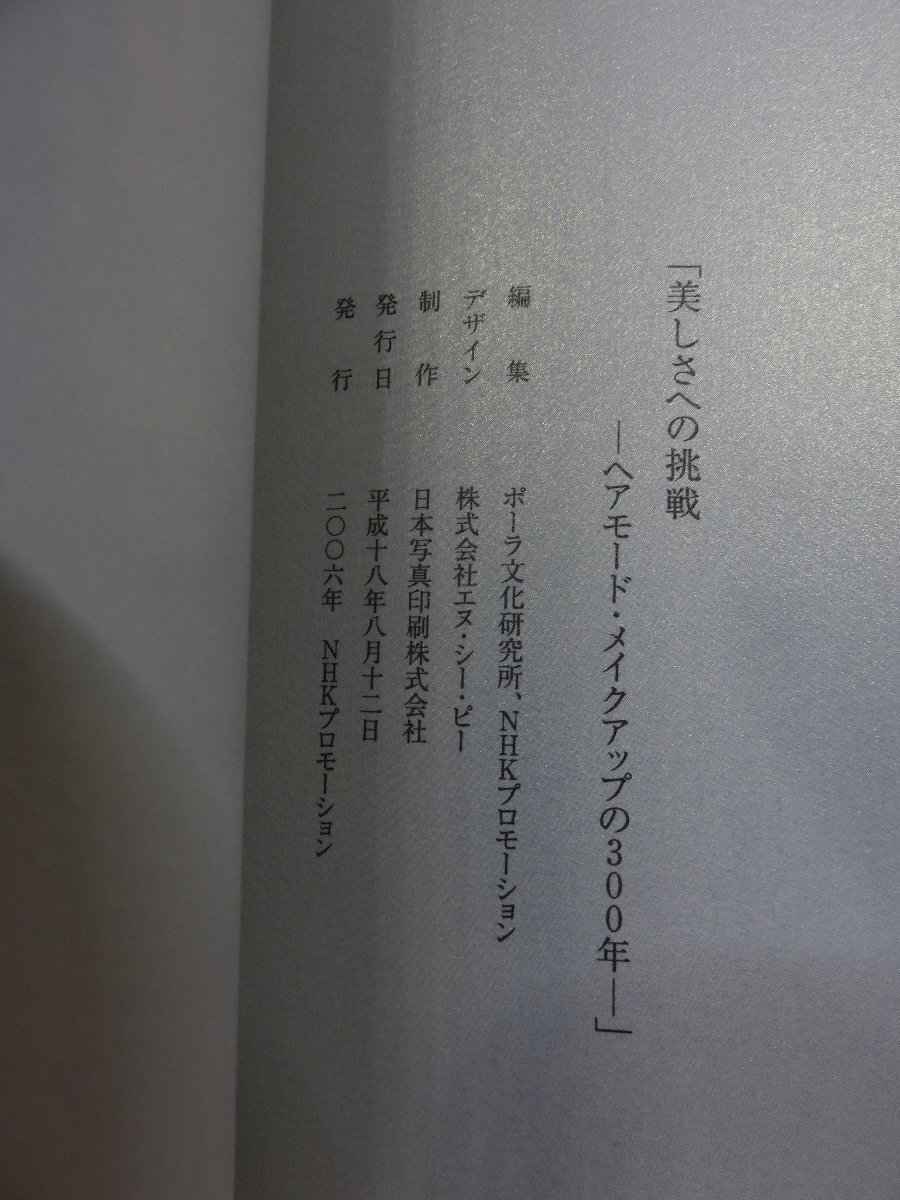 「美しさへの挑戦
―ヘアモード・メイクアップの300年―」
編集 ポーラ文化研究所、NHKプロモーション
デザイン 株式会社エヌ・シー・ピー
制作 日本写真印刷株式会社
発行日 平成十八年八月十二日
発行 二〇〇六年 NHKプロモーション